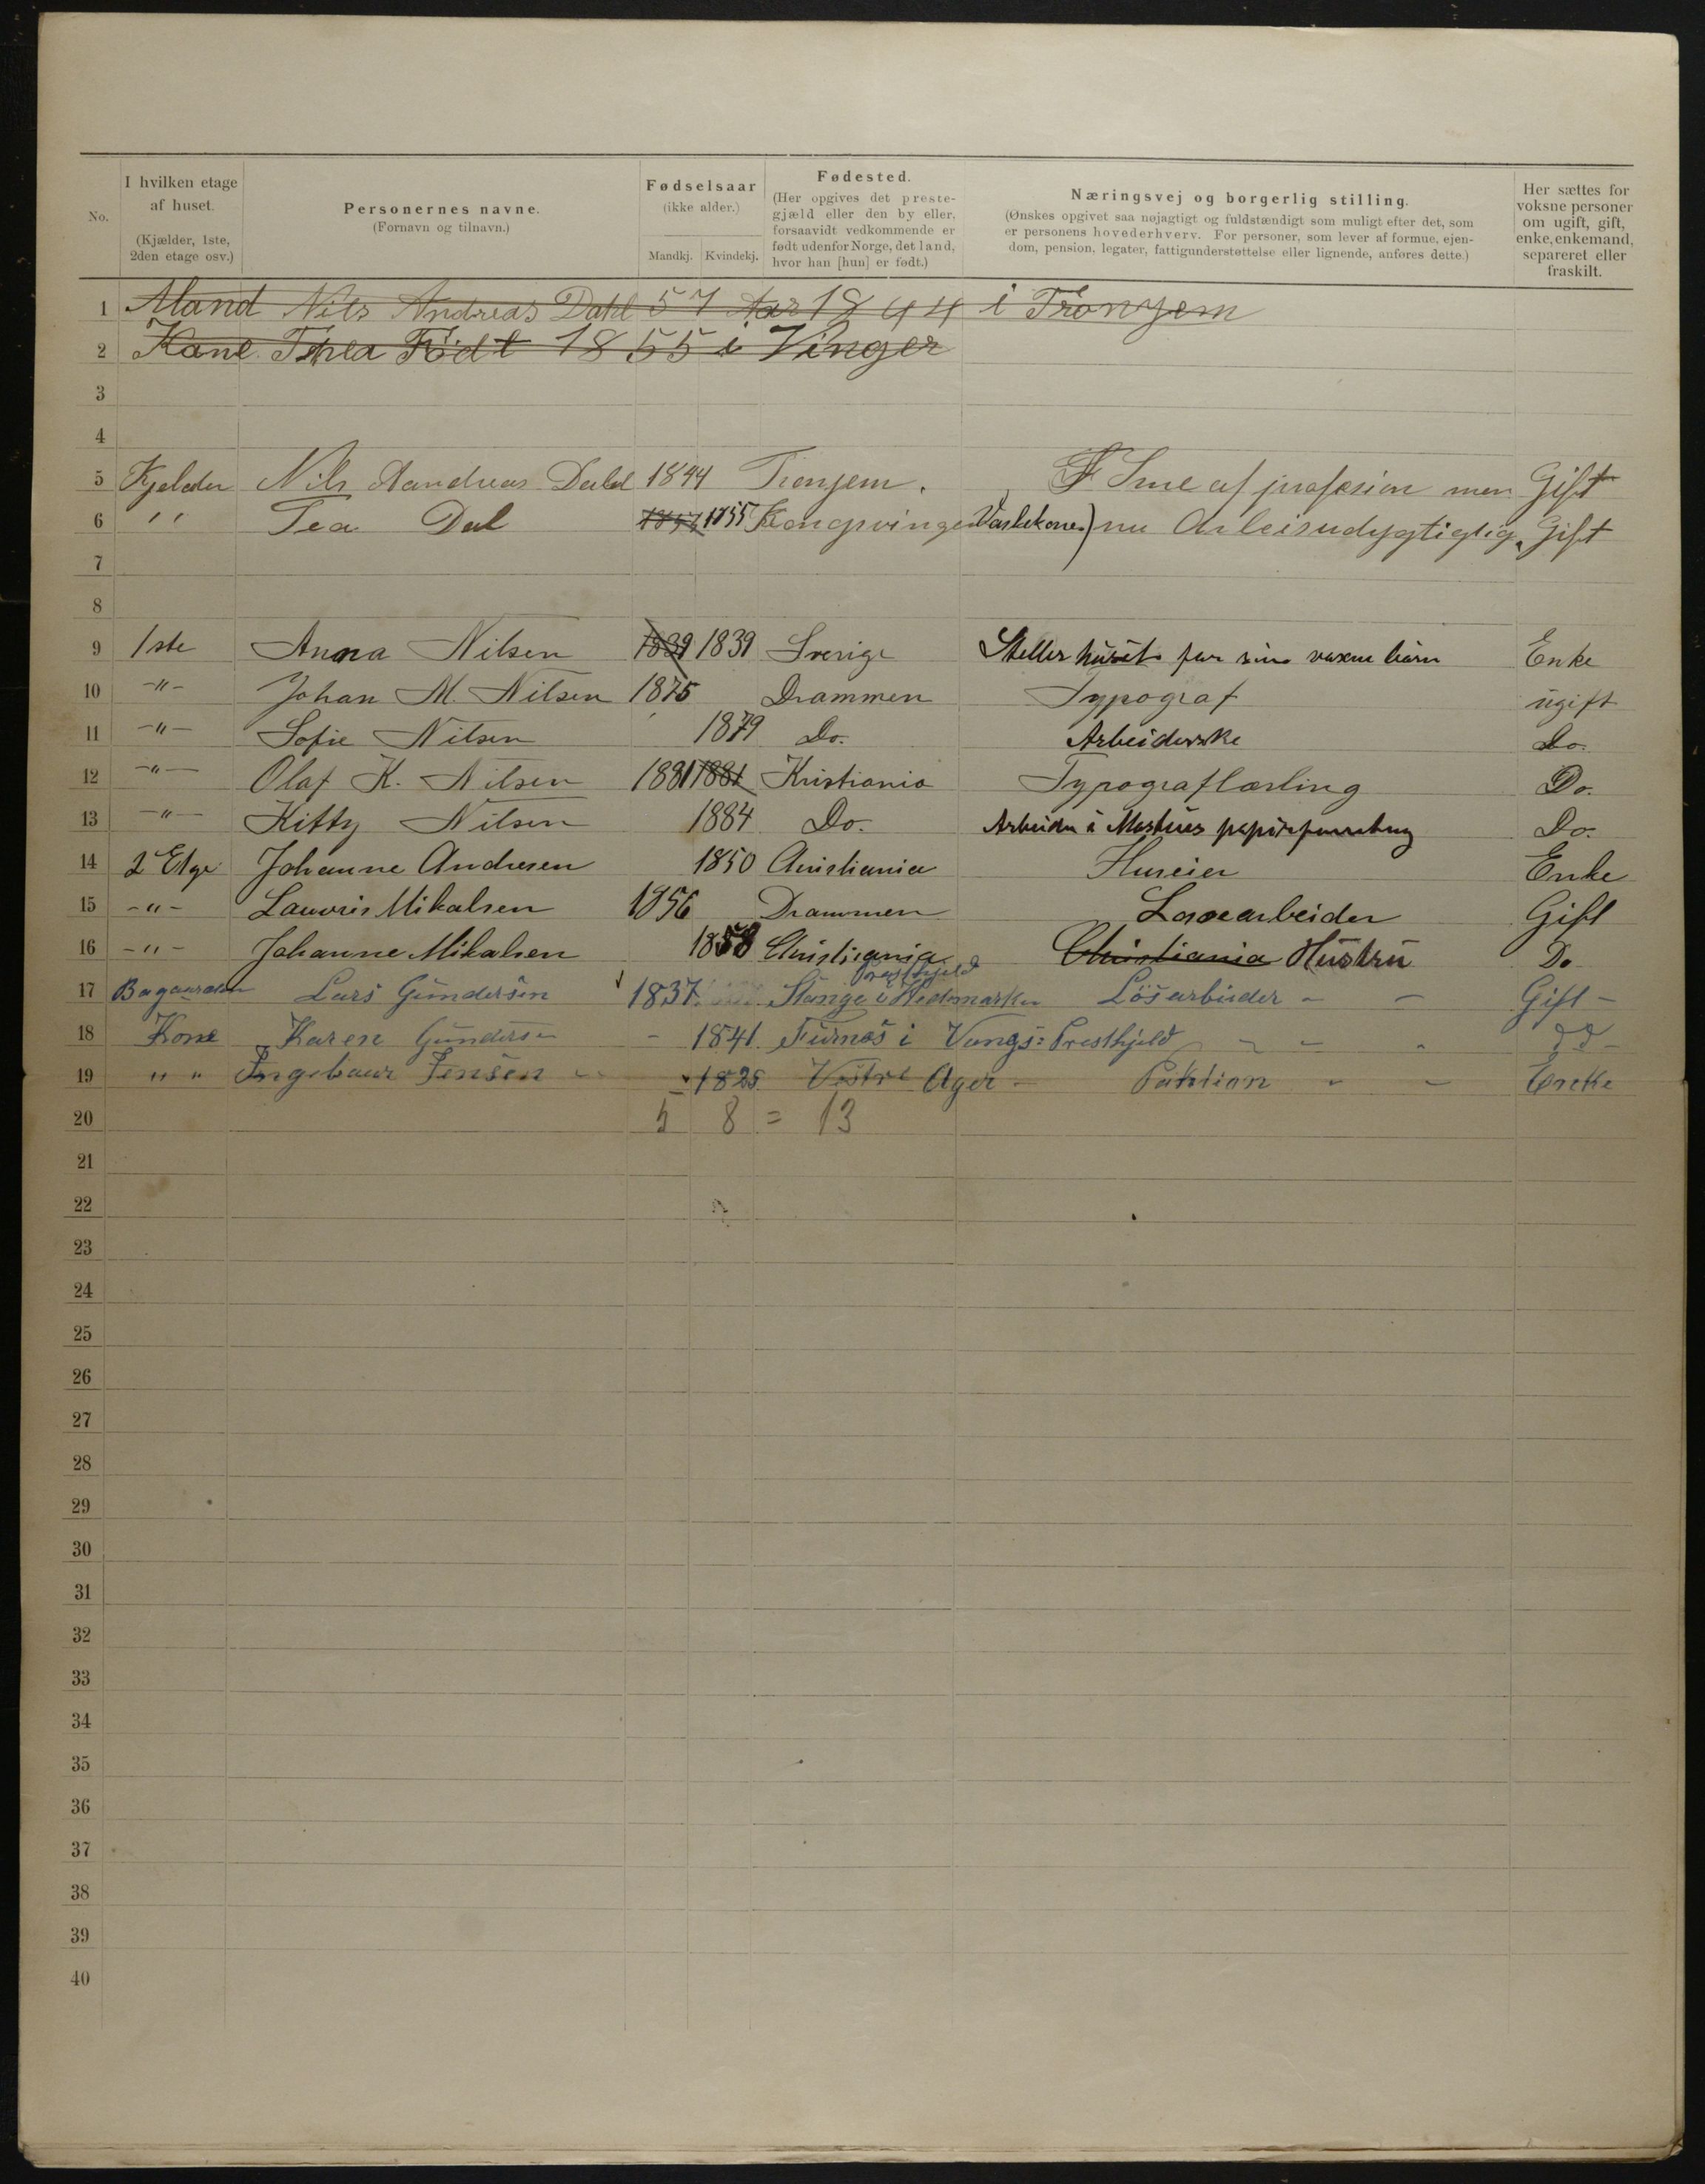 No. I hvilken etage af huset. (Kjælder, 1ste, 2den etage osv.) Personernes navne. (Fornavn og tilnavn.) Fødselsaar (ikke alder.) Mandkj. Kvindekj. Fødested. (Her opgives det prestegjæld eller den by eller, forsaavidt vedkommende er født udenfor Norge, det land, hvor han [hun] er født.) Næringsvej og borgerlig stilling. (Ønskes opgivet saa nøjagtigt og fuldstændigt som muligt efter det, som er personens hovederhverv. For personer, som lever af formue, ejendom, pension, legater, fattigunderstøttelse eller lignende, anføres dette.) Her sættes for voksne personer om ugift, gift, enke, enkemand, separeret eller fraskilt.
1 Mand Nils Andreas Dahl 57 Aar 1844 i Tronyem
2 Kone Thea Födt 1855 i Vinger
3
4
5 Kjelder Nils Aandreas Dahl 1844 Tronjem. Sme af profesion men Gift
6 " Tea Dal 1855 Kongsvinger Vaskekone) nu Arleisudygtiglig. Gift
7
8
9 1ste Anna Nilsen 1839 1839 Sverige Steller huset for sine voxne børn Enke
10 -"- Johan M. Nilsen 1875 Drammen Typograf ugift
11 -"- Sofie Nilsen 1879 Do. Arbeiderske Do.
12 -"- Olaf K. Nilsen 1881 1881 Kristiania Typograflærling Do.
13 -"- Kitty Nilsen 1884 Do. Arbeider i Do.
14 2 Etge Johanne Andresen 1850 Christiania Huseier Enke
15 -"- Lauvris Mikalsen 1856 Drammen Løsearbeider Gift
16 -"- Johanne Mikalsen 1858 Christiania Christiania Hustru Do
17 Bagaarden Lars Gundersen 1837 Stange i Hedemarken Presthjeld Lösarbeider - - Gift -
18 Kone Karen Gundersen - 1841. Furnes i Vangs: Presthjeld - - - dd -
19 " " Ingebaur Jensen - - 1825 Vestre Ager - - - Encke
20 5 8 = 13
21
22
23
24
25
26
27
28
29
30
31
32
33
34
35
36
37
38
39
40